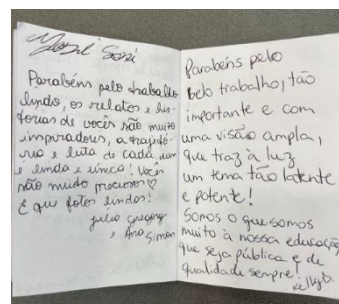 Parabéns pelo trabalho
lindo, os relatos e his-
tórias de vocês são muito
inspiradores, a trajetó-
ria e luta de cada um
é linda e única! Vocês
são muito preciosos ♡
E que fotos lindas!
Julio Gregory
e Ana Simon
Parabéns pelo
belo trabalho, tão
importante e com
uma visão ampla,
que traz à luz
um tema tão latente
e potente!
Somos o que somos
muito à nossa educação
que seja pública e de
qualidade sempre!